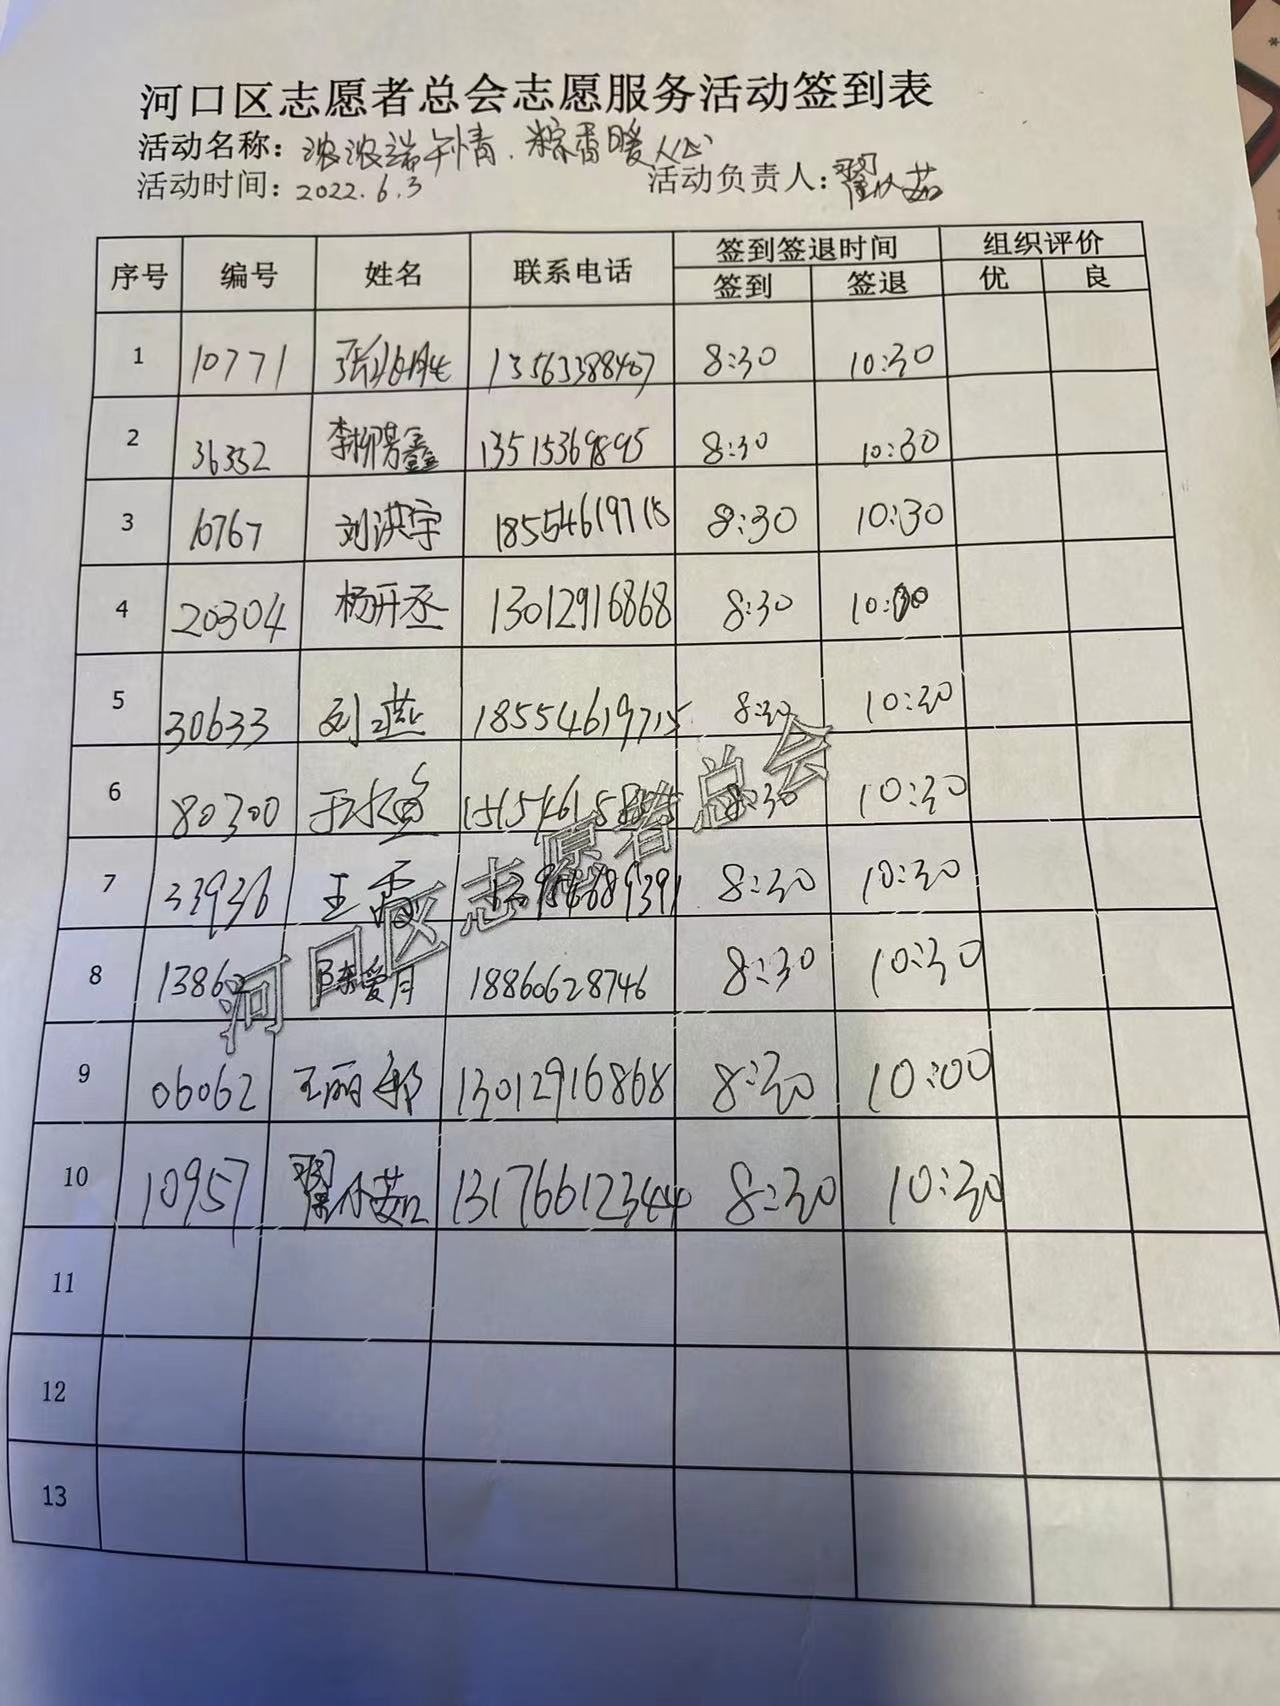 河口区志愿者总会志愿服务活动签到表
活动名称：浓浓端午情．粽香暖人心
活动时间：2022.6.3 活动负责人：翟 茹
序号 编号 姓名 联系电话 签到签退时间 组织评价
签到 签退 优 良
1 10771 13563388487 8:30 10:30
2 36352 李柳男鑫 13515369895 8:30 10:30
3 10767 刘洪宇 18554619715 8:30 10:30
4 20304 杨开丞 13012916868 8:30
5 30633 刘燕 18554619715 8:30 10:30
6 80300 8:30 10:30
7 33936 王霞 8:30 10:30
8 陈爱月 18860628746 8:30 10:30
9 06062 王丽 13012916868 8:30 10:00
10 10957 翟 茹 13176612344 8:30 10:30
11
12
13
河口区志愿者总会